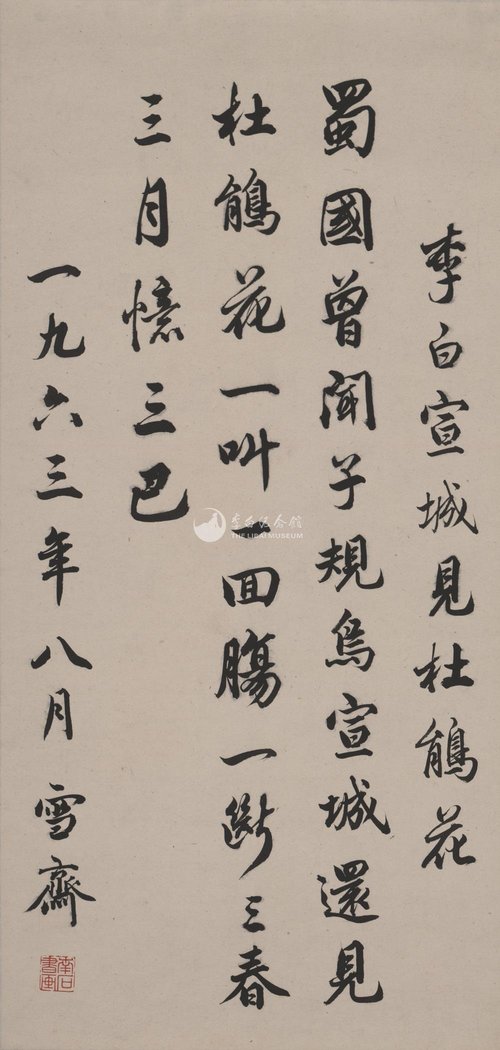 李白宣城見杜鵑花
蜀國曾聞子規鳥宣城還見
杜鵑花一叫一回腸一斷三春
三月憶三巴
一九六三年八月雪齋
李白纪念馆
THE LIBAI MUSEUM